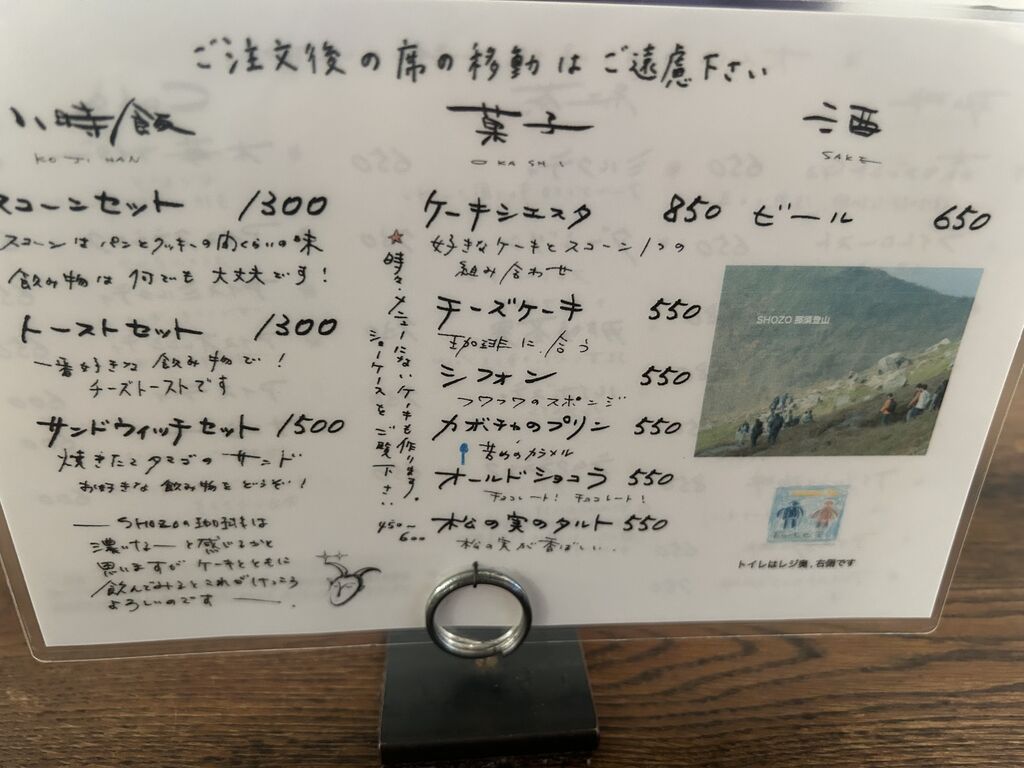 ご注文後の席の移動はご遠慮下さい
小時飯
KO JI HAN
スコーンセット 1300
スコーンはパンとクッキーの間くらいの味
飲み物は何でも大丈夫です!
トーストセット 1300
一番好きな飲み物で!
チーズトーストです
サンドウィッチセット 1500
焼きたてタマゴのサンド
お好きな飲み物をどうぞ!
SHOZOの珈琲は
濃いなーと感じるかと
思いますがケーキとともに
飲んでみるとこれがけっこう
よろしいのです
☆時々、メニューにないケーキも作ります。
ショーケースをご覧下さい
菓子
OKASHI
ケーキシエスタ 850
好きなケーキとスコーン1つの
組み合わせ
チーズケーキ 550
珈琲に合う
シフォン 550
フワフワのスポンジ
カボチャのプリン 550
昔めのカラメル
オールドショコラ 550
チョコレート!チョコレート!
450~
600
松の実のタルト 550
松の実が香ばしい...
酒
SAKE
ビール 650
SHOZO 那須登山
トイレはレジ奥、右側です